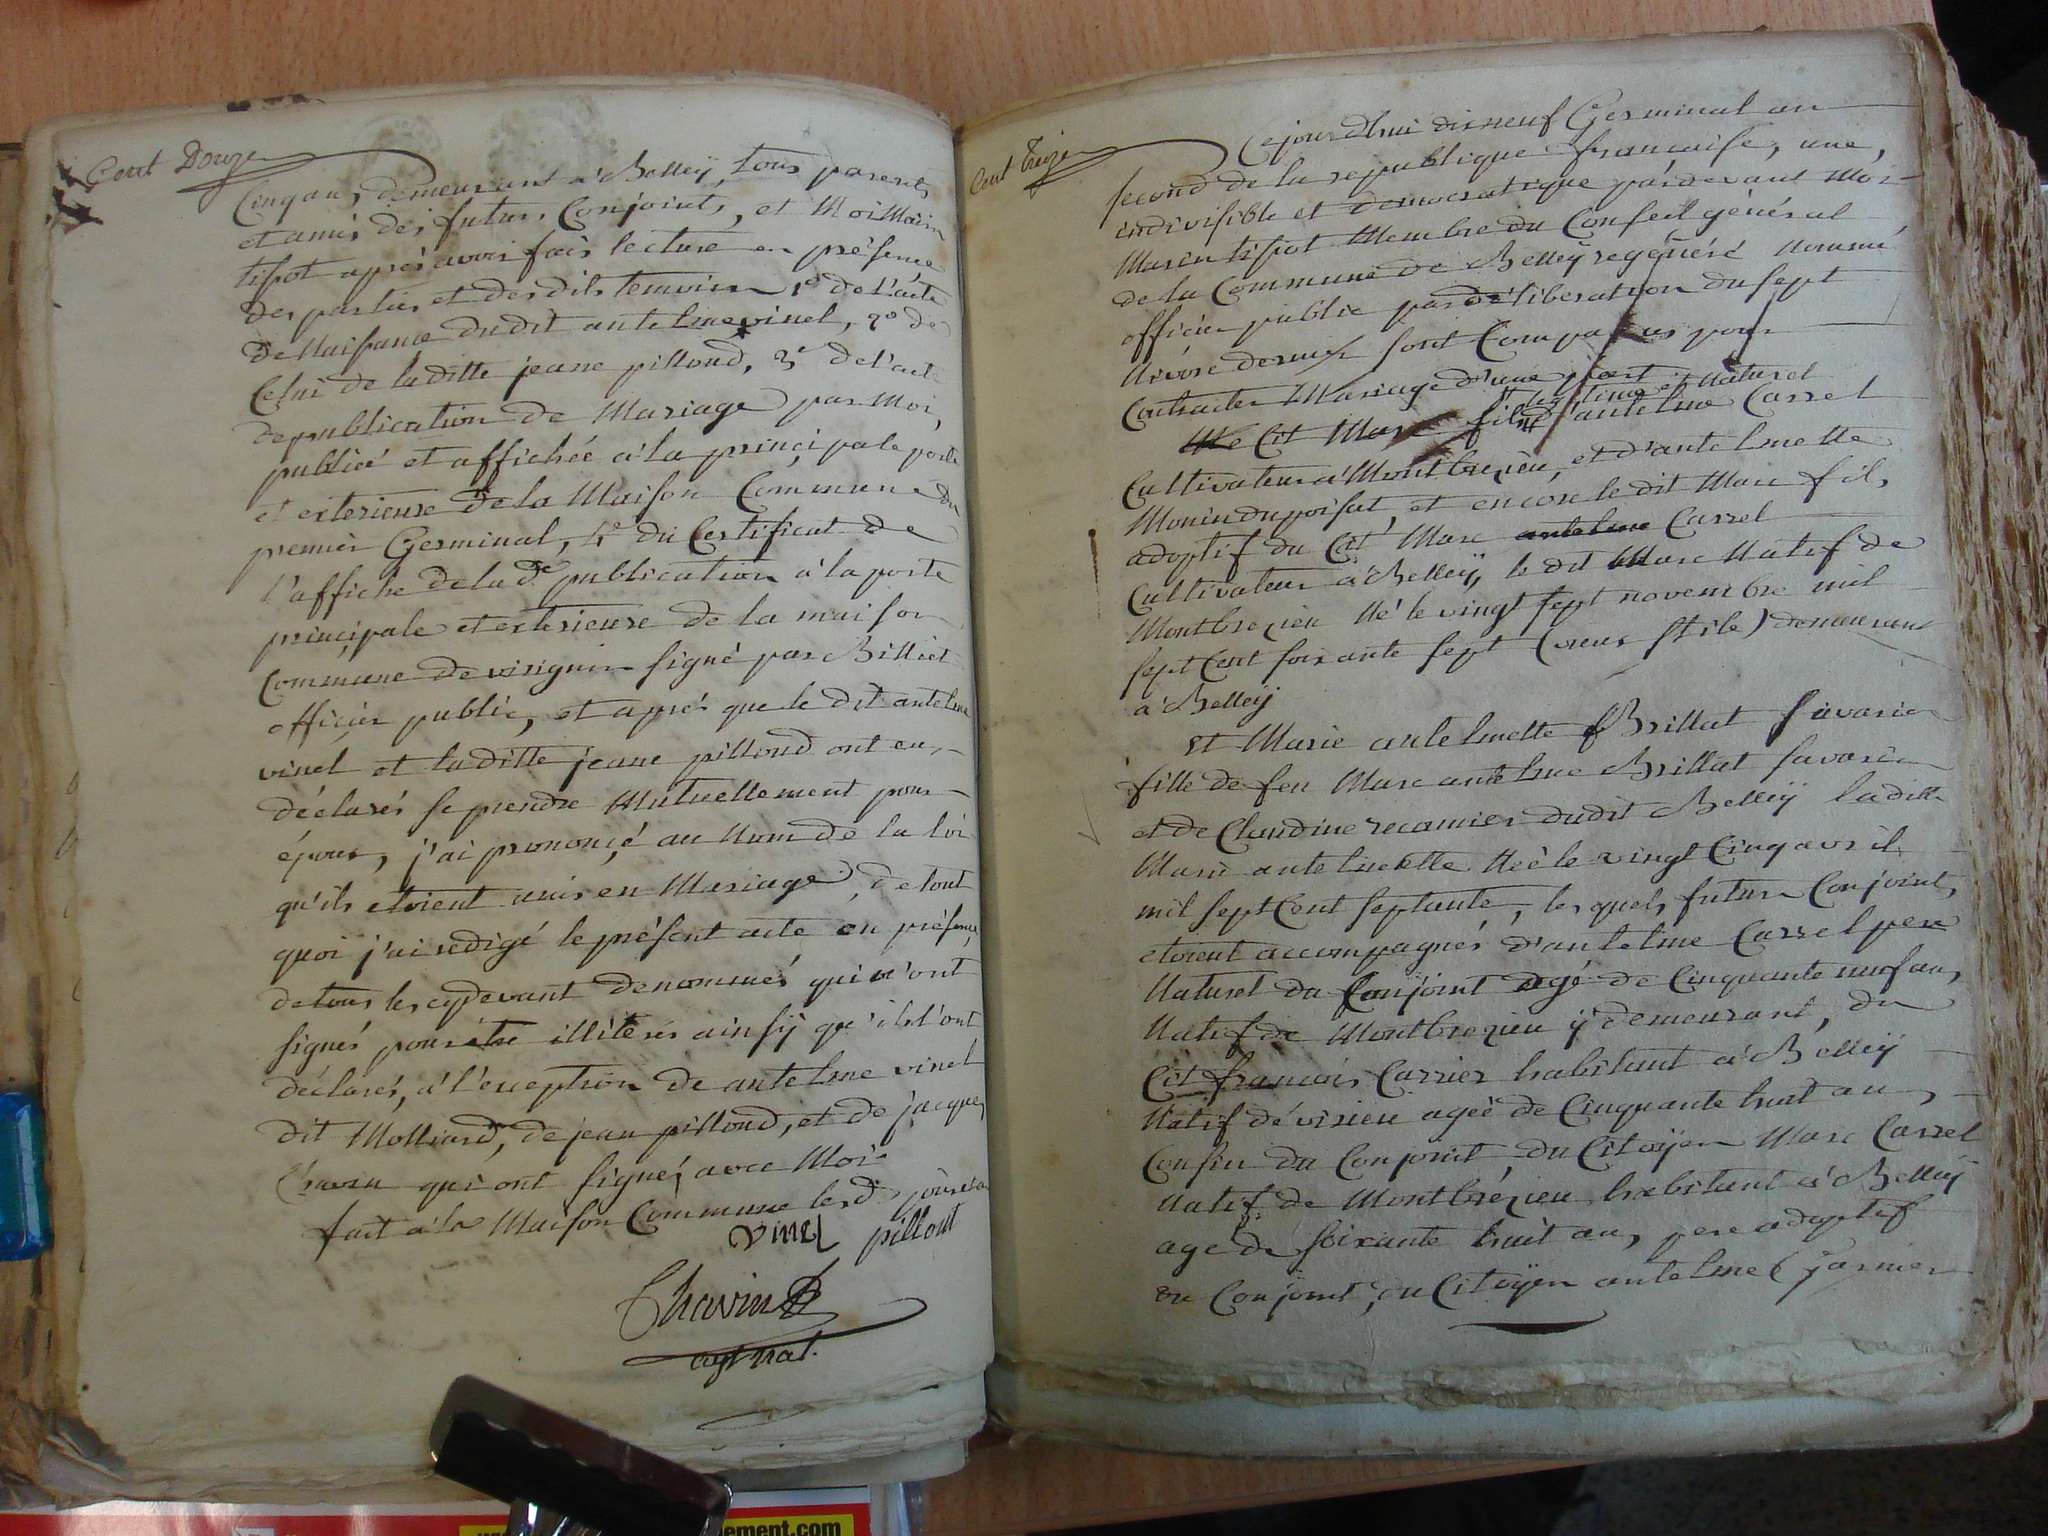 Cent Douze
Cinq ans, demeurant à Belleÿ, tous parents
et amis des futurs Conjoints, et Moi Marin
tisot après avoir fais lecture en présence
des parties et desdits temoins 1° de L'acte
de Naissance dudit antelme vinel, 2° de
Celui de laditte jeane pillond, 3° de l'acte
de publication de Mariage par Moi,
publiée et affichée à la principale porte
et exterieure de la Maison Commune du
premier Germinal, 4° du Certificat de
l'affiche de lade publication à la porte
principale et exterieure de la maison
Commune de virignin signé par Billiet
officier public, et après que le dit antelme
vinel et laditte jeane pillond ont eu,
déclarés se prendre Mutuellement pour
époux, j'ai prononcé au Nom de la loi
qu'ils etoient unis en Mariage, de tout
quoi j'ai redigé le présent acte en présence
de tous les cydevant denommés qui n'ont
signés pour être illiterés ainsÿ qu'ils l'ont
déclarés, à l'exception de antelme vinel
dit Molliard, de jean pillond, et de jacques
Chavin qui ont signés avec Moi
fait à la Maison Commune lesd. jour et an
vinel pillout
Chavin
Cent treize
Cejourdhui dixneuf Germinal an
second de la republique francaise, une,
indivisible et democratique pardevant Moi
Marin tisot Membre du Conseil général
de la Commune de Belleÿ regénéré Nommé
officier public par déliberation du sept
Nivose dernier sont Comparus pour
Contracter Mariage d'une part
legitime et Naturel
Le Cit Marc fils d'antelme Carrel
Cultivateur à Montbrezieu, et d'antelmette
Monin du poisat, et encore le dit Marc fils
adoptif du Cit Marc antelme Carrel
Cultivateur à Belleÿ, le dit Marc Natif de
Montbrezieu Né le vingt sept novembre mil
sept Cent soixante sept (vieux stile) demeurant
à Belleÿ
Et Marie antelmette Brillat Savarin
fille de feu Marc antelme Brillat Savarin
et de Claudine recamier dudit Belleÿ laditte
Marie antelmette Neé le vingt Cinq avril
mil sept Cent septante, lesquels futurs Conjoints
etoient accompagnés d'antelme Carrel pere
Naturel du Conjoint agé de Cinquante neuf ans,
Natif de Montbrezieu ÿ demeurant, du
Cit francois Carrier habitant à Belleÿ
Natif de virieu ageé de Cinquante huit ans,
Cousin du Conjoint du Citoÿen Marc Carrel
Natif de Montbrézieu habitant à Belleÿ
agé de soixante huit ans, pere adoptif
du Conjoint, du Citoÿen antelme jarnier
ement.com